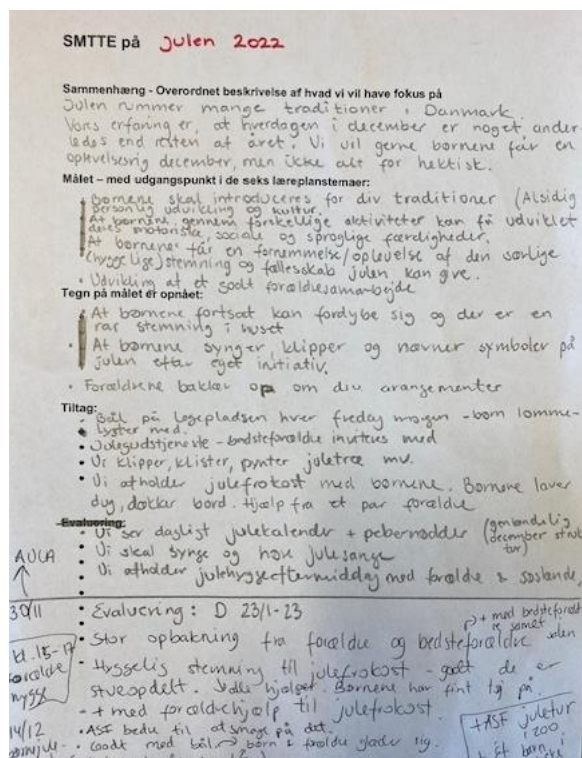 SMTTE på julen 2022
Sammenhæng - Overordnet beskrivelse af hvad vi vil have fokus på
Julen rummer mange traditioner i Danmark.
Vores erfaring er, at hverdagen i december er noget ander
ledes end resten af året. Vi vil gerne børnene får en
oplevelsesrig december, men ikke alt for hektisk.
Målet – med udgangspunkt i de seks læreplanstemaer:
Børnene skal introduceres for div traditioner (Alsidig
personlig udvikling og kultur.
At børnene, gennem forskellige aktiviteter kan få udviklet
deres motoriske, sociale og sproglige færdigheder.
At børnene får en fornemmelse/oplevelse af den særlige
(hyggelige) stemning og fællesskab julen kan give.
• Udvikling af et godt forældresamarbejde
Tegn på målet er opnået:
• At børnene fortsat kan fordybe sig og der er en
rar stemning i huset
• At børnene synger, klipper og nævner symboler på
julen efter eget initiativ.
• Forældrene bakker op om div arangementer
Tiltag:
• Bål på legepladsen hver fredag morgen - børn lomme-
lygter med.
• Julegudstjeneste - bedsteforældre inviteres med
• Vi klipper, klister, pynter juletræ mv.
• Vi afholder julefrokost med børnene. Børnene laver
dug, dækker bord. Hjælp fra et par forældre
Evaluering:
• Vi ser dagligt julekalender + pebernødder (genkendelig
december struk
tur)
• Vi skal synge og høre julesange
• Vi afholder julehyggeeftermiddag med forældre & søskende
AULA
30/11
• Evaluering: D 23/1-23
+ med bedsteforældre
• Stor opbakning fra forældre og bedsteforældre
kl. 15-17
forældre
hygge
- Hyggelig stemning til julefrokost - godt de er
stueopdelt. Alle hjalp. Børnene har fint tøj på.
- + med forældrehjælp til julefrokost.
14/12
• ASF bedu til at smage på det.
• Godt med bål → børn & forældre glæder sig.
+ ASF juletur
i ZOO
børn i